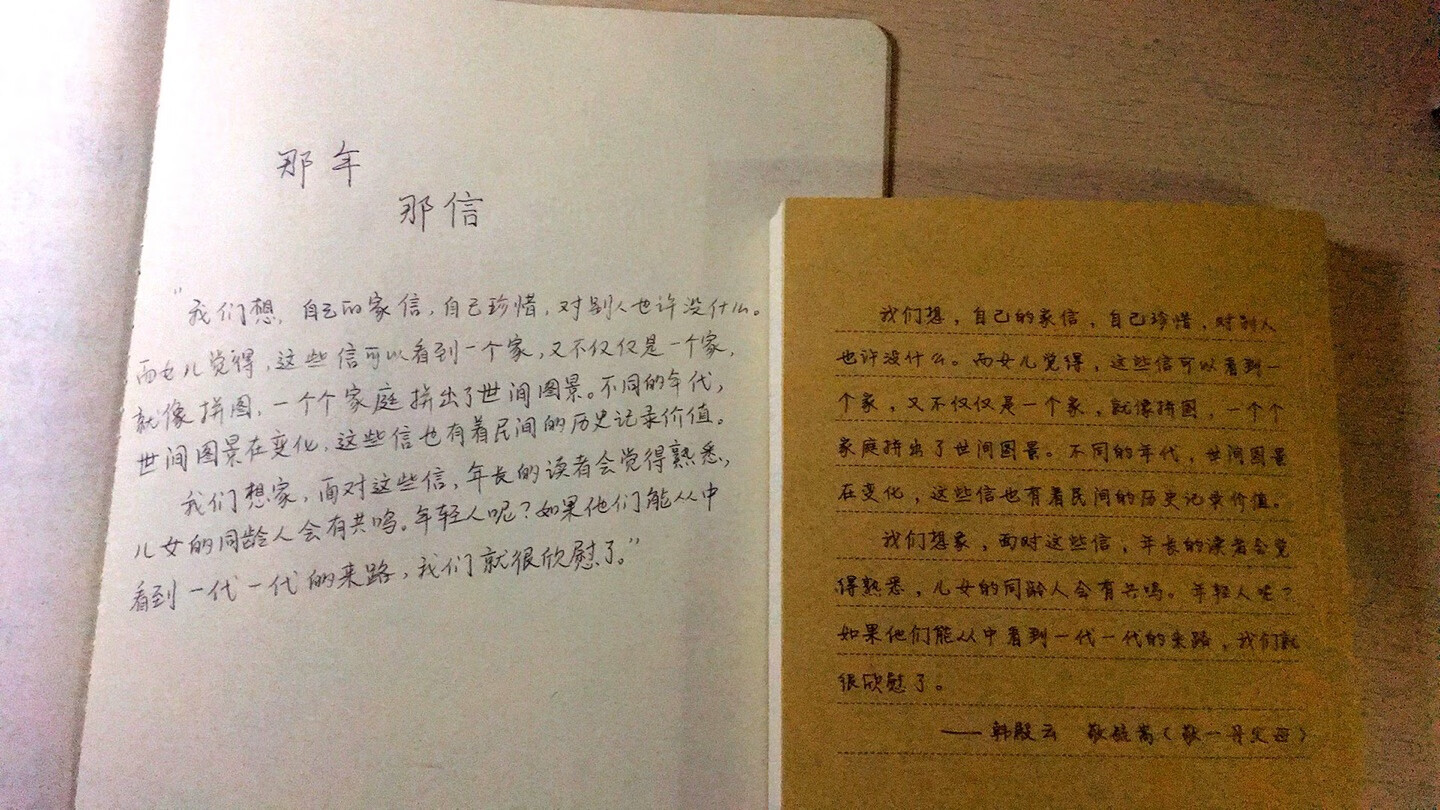 那年
那信
"我们想，自己的家信，自己珍惜，对别人也许没什么。
而女儿觉得，这些信可以看到一个家，又不仅仅是一个家，
就像拼图，一个个家庭拼出了世间图景。不同的年代，
世间图景在变化，这些信也有着民间的历史记录价值。
我们想家，面对这些信，年长的读者会觉得熟悉，
儿女的同龄人会有共鸣。年轻人呢？如果他们能从中
看到一代一代的来路，我们就很欣慰了。"
我们想，自己的家信，自己珍惜，对别人
也许没什么。而女儿觉得，这些信可以看到一
个家，又不仅仅是一个家，就像拼图，一个个
家庭拼出了世间图景。不同的年代，世间图景
在变化，这些信也有着民间的历史记录价值。
我们想象，面对这些信，年长的读者会觉
得熟悉，儿女的同龄人会有共鸣。年轻人呢？
如果他们能从中看到一代一代的来路，我们就
很欣慰了。
——韩殿云 敬毓嵩（敬一丹父母）